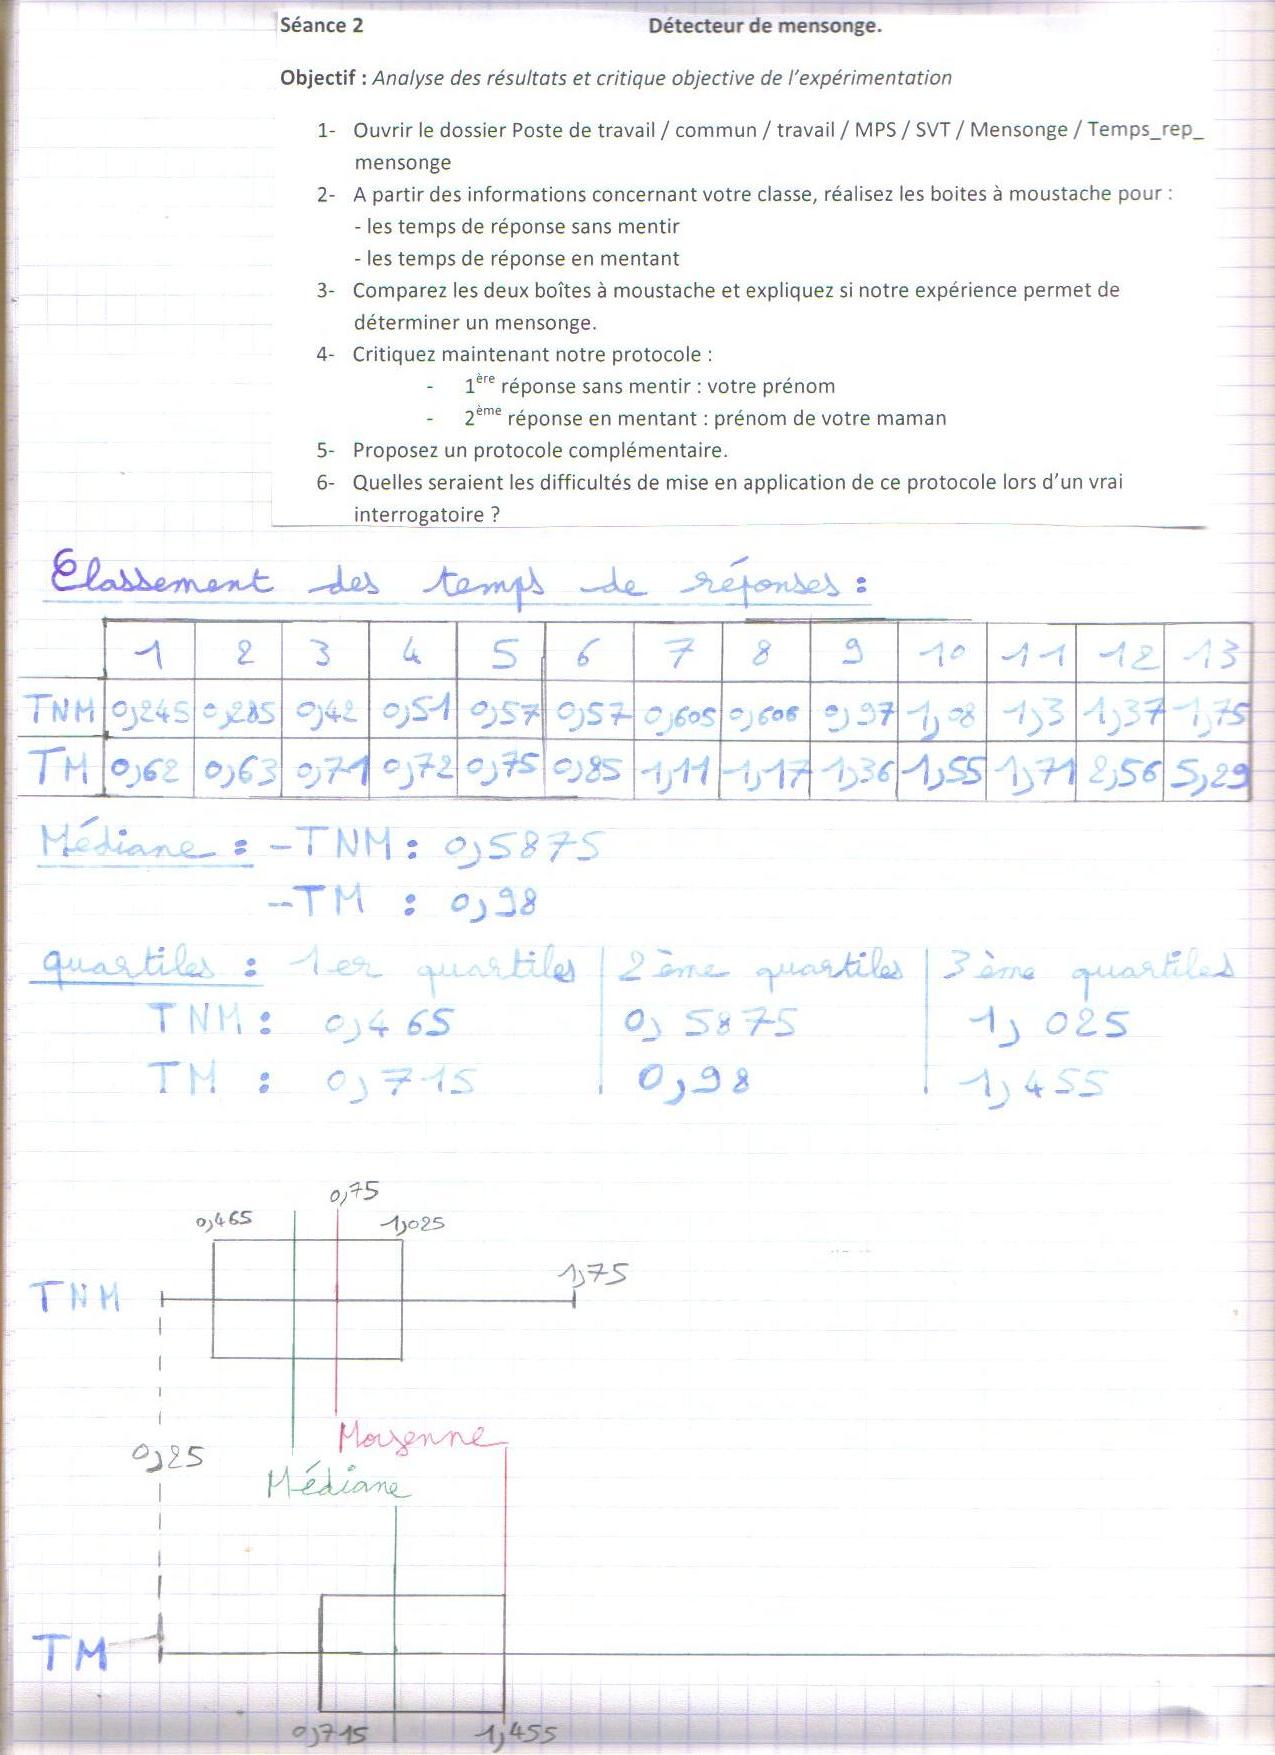 Séance 2 Détecteur de mensonge.
Objectif : Analyse des résultats et critique objective de l'expérimentation
1- Ouvrir le dossier Poste de travail / commun / travail / MPS / SVT / Mensonge / Temps_rep_
mensonge
2- A partir des informations concernant votre classe, réalisez les boites à moustache pour :
- les temps de réponse sans mentir
- les temps de réponse en mentant
3- Comparez les deux boîtes à moustache et expliquez si notre expérience permet de
déterminer un mensonge.
4- Critiquez maintenant notre protocole :
- 1ère réponse sans mentir : votre prénom
- 2ème réponse en mentant : prénom de votre maman
5- Proposez un protocole complémentaire.
6- Quelles seraient les difficultés de mise en application de ce protocole lors d'un vrai
interrogatoire ?
Classement des temps de réponses :
1 2 3 4 5 6 7 8 9 10 11 12 13
TNM 0,245 0,285 0,42 0,51 0,57 0,57 0,605 0,606 0,97 1,08 1,3 1,37 1,75
TM 0,62 0,63 0,71 0,72 0,75 0,85 1,11 1,17 1,36 1,55 1,71 2,56 5,29
Médiane : - TNM : 0,5875
- TM : 0,98
quartiles : 1er quartiles | 2ème quartiles | 3ème quartiles
TNM : 0,465 0,5875 1,025
TM : 0,715 0,98 1,455
0,75
0,465 1,025
1,75
TNM
Moyenne
0,25
Médiane
TM
0,715 1,455